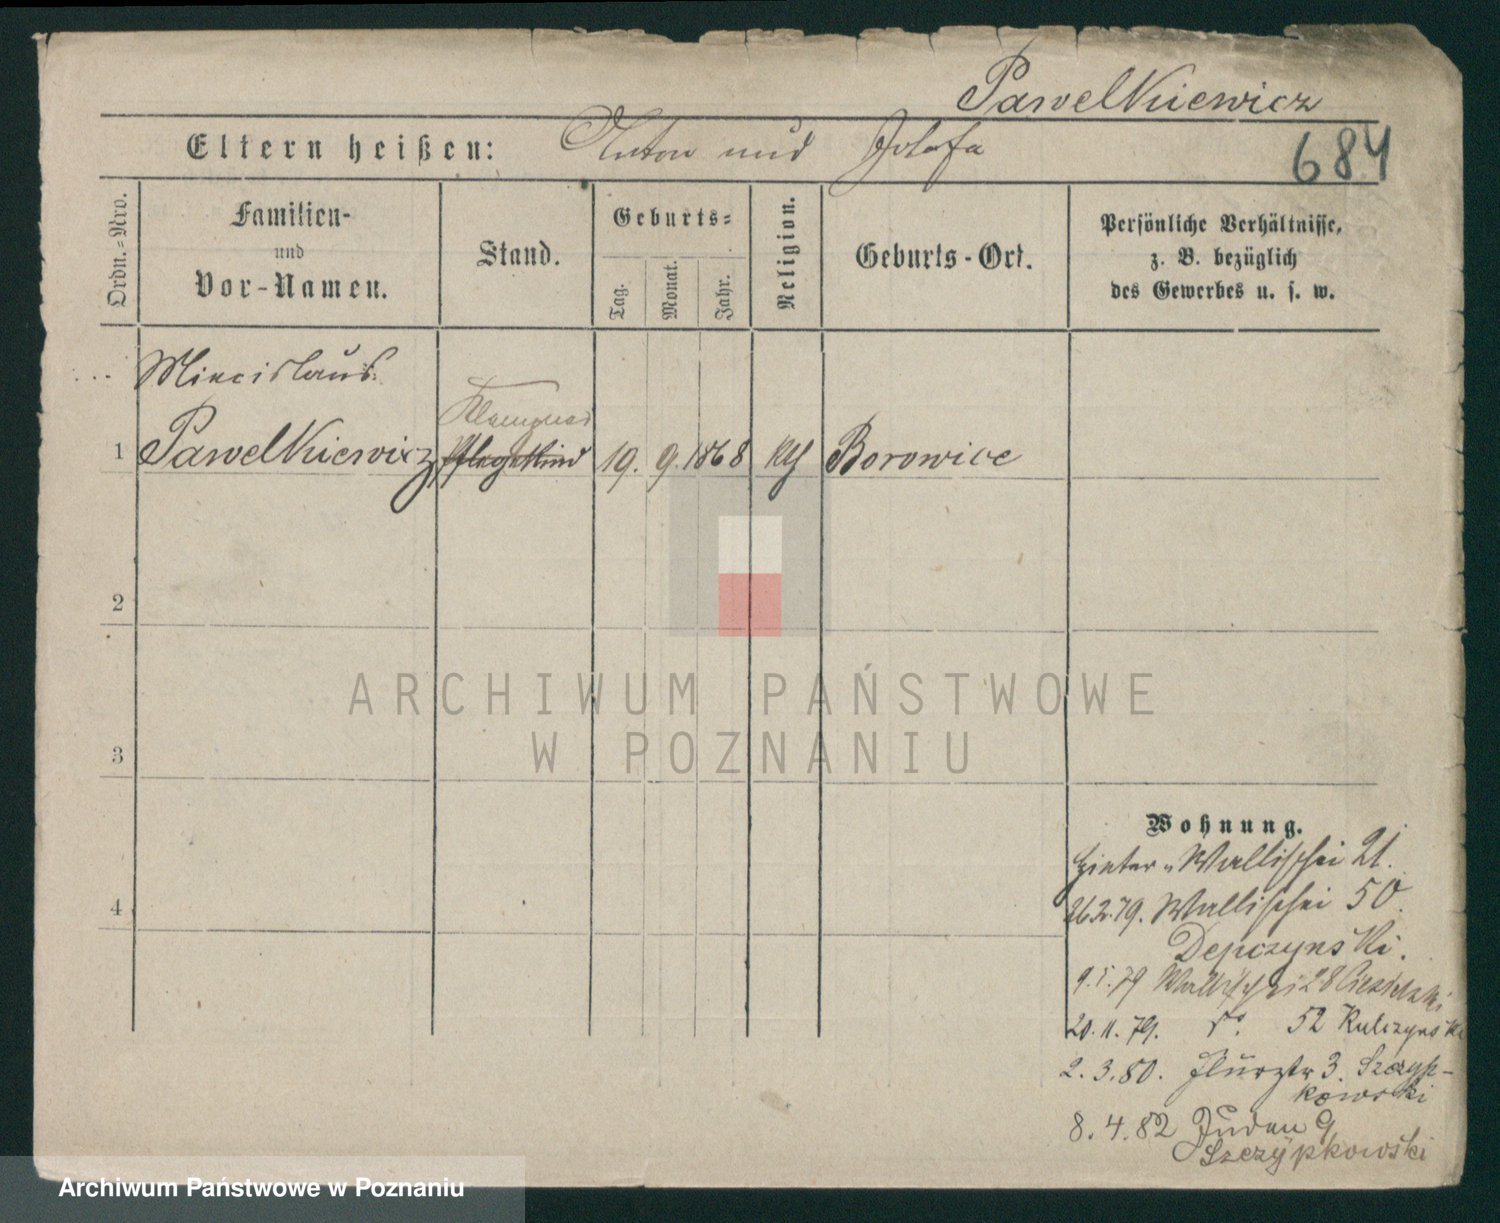 Pawelkiewicz
Eltern heißen: Anton und Josefa
684
Ordn.-Nro.
Familien-
und
Vor-Namen.
Stand.
Geburts-
Tag.
Monat.
Jahr.
Religion.
Geburts-Ort.
Persönliche Verhältnisse,
z. B. bezüglich
des Gewerbes u. s. w.
Miecislaus
1 Pawelkiewicz Pflegekind 19. 9. 1868 kth Borowice
2
3
4
ARCHIWUM PAŃSTWOWE
W POZNANIU
Wohnung.
Hinter-Wallischei 21.
26.2.79. Wallischei 50.
Depczynski.
9.5.79 Wallischei 28
20.11.79. do. 52 Kulczynski
2.3.80. Flurstr 3. Szczyp-
kowski
8.4.82 Juden 9
Szczypkowski
Archiwum Państwowe w Poznaniu